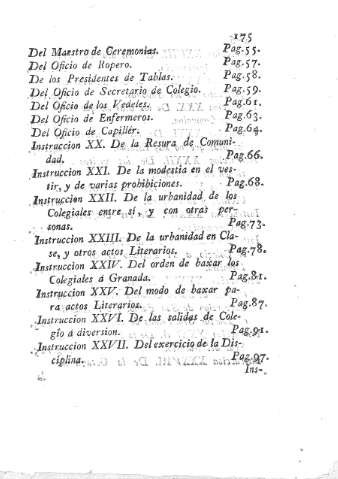 175
Del Maestro de Ceremonias. Pag.55.
Del Oficio de Ropero. Pag.57.
De los Presidentes de Tablas. Pag.58.
Del Oficio de Secretario de Colegio. Pag.59.
Del Oficio de los Vedeles. Pag.61.
Del Oficio de Enfermeros. Pag.63.
Del Oficio de Capillér. Pag.64.
Instruccion XX. De la Resura de Comuni-
dad. Pag.66.
Instruccion XXI. De la modestia en el ves-
tir, y de varias prohibiciones. Pag.68.
Instruccion XXII. De la urbanidad de los
Colegiales entre sí, y con otras per-
sonas. Pag.73.
Instruccion XXIII. De la urbanidad en Cla-
se, y otros actos Literarios. Pag.78.
Instruccion XXIV. Del orden de baxar los
Colegiales á Granada. Pag.81.
Instruccion XXV. Del modo de baxar pa-
ra actos Literarios. Pag.87.
Instruccion XXVI. De las salidas de Cole-
gio á diversion. Pag.91.
Instruccion XXVII. Del exercicio de la Dis-
ciplina. Pag.97.
Ins-